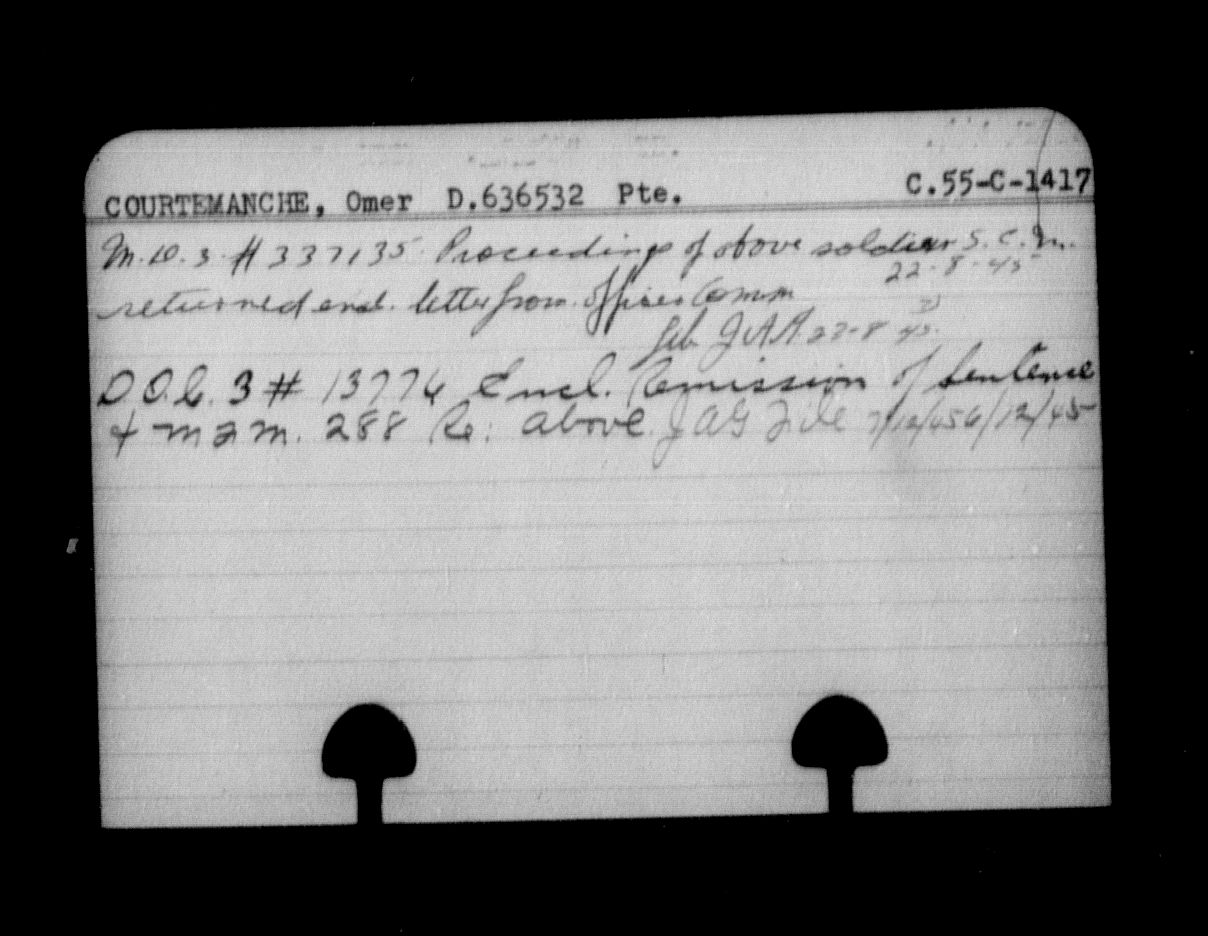 COURTEMANCHE, Omer D.636532 Pte. C.55-C-1417
M.D.3 # 337135 Proceedings of above soldier S.C.M.
22-8-45
returned and. letter from Officer Comm
JAG 22-8 45.
D.O.C. 3 # 13776 Encl. Remission of Sentence
& mfm. 288 Re: above. JAG File 7/12/45 6/12/45